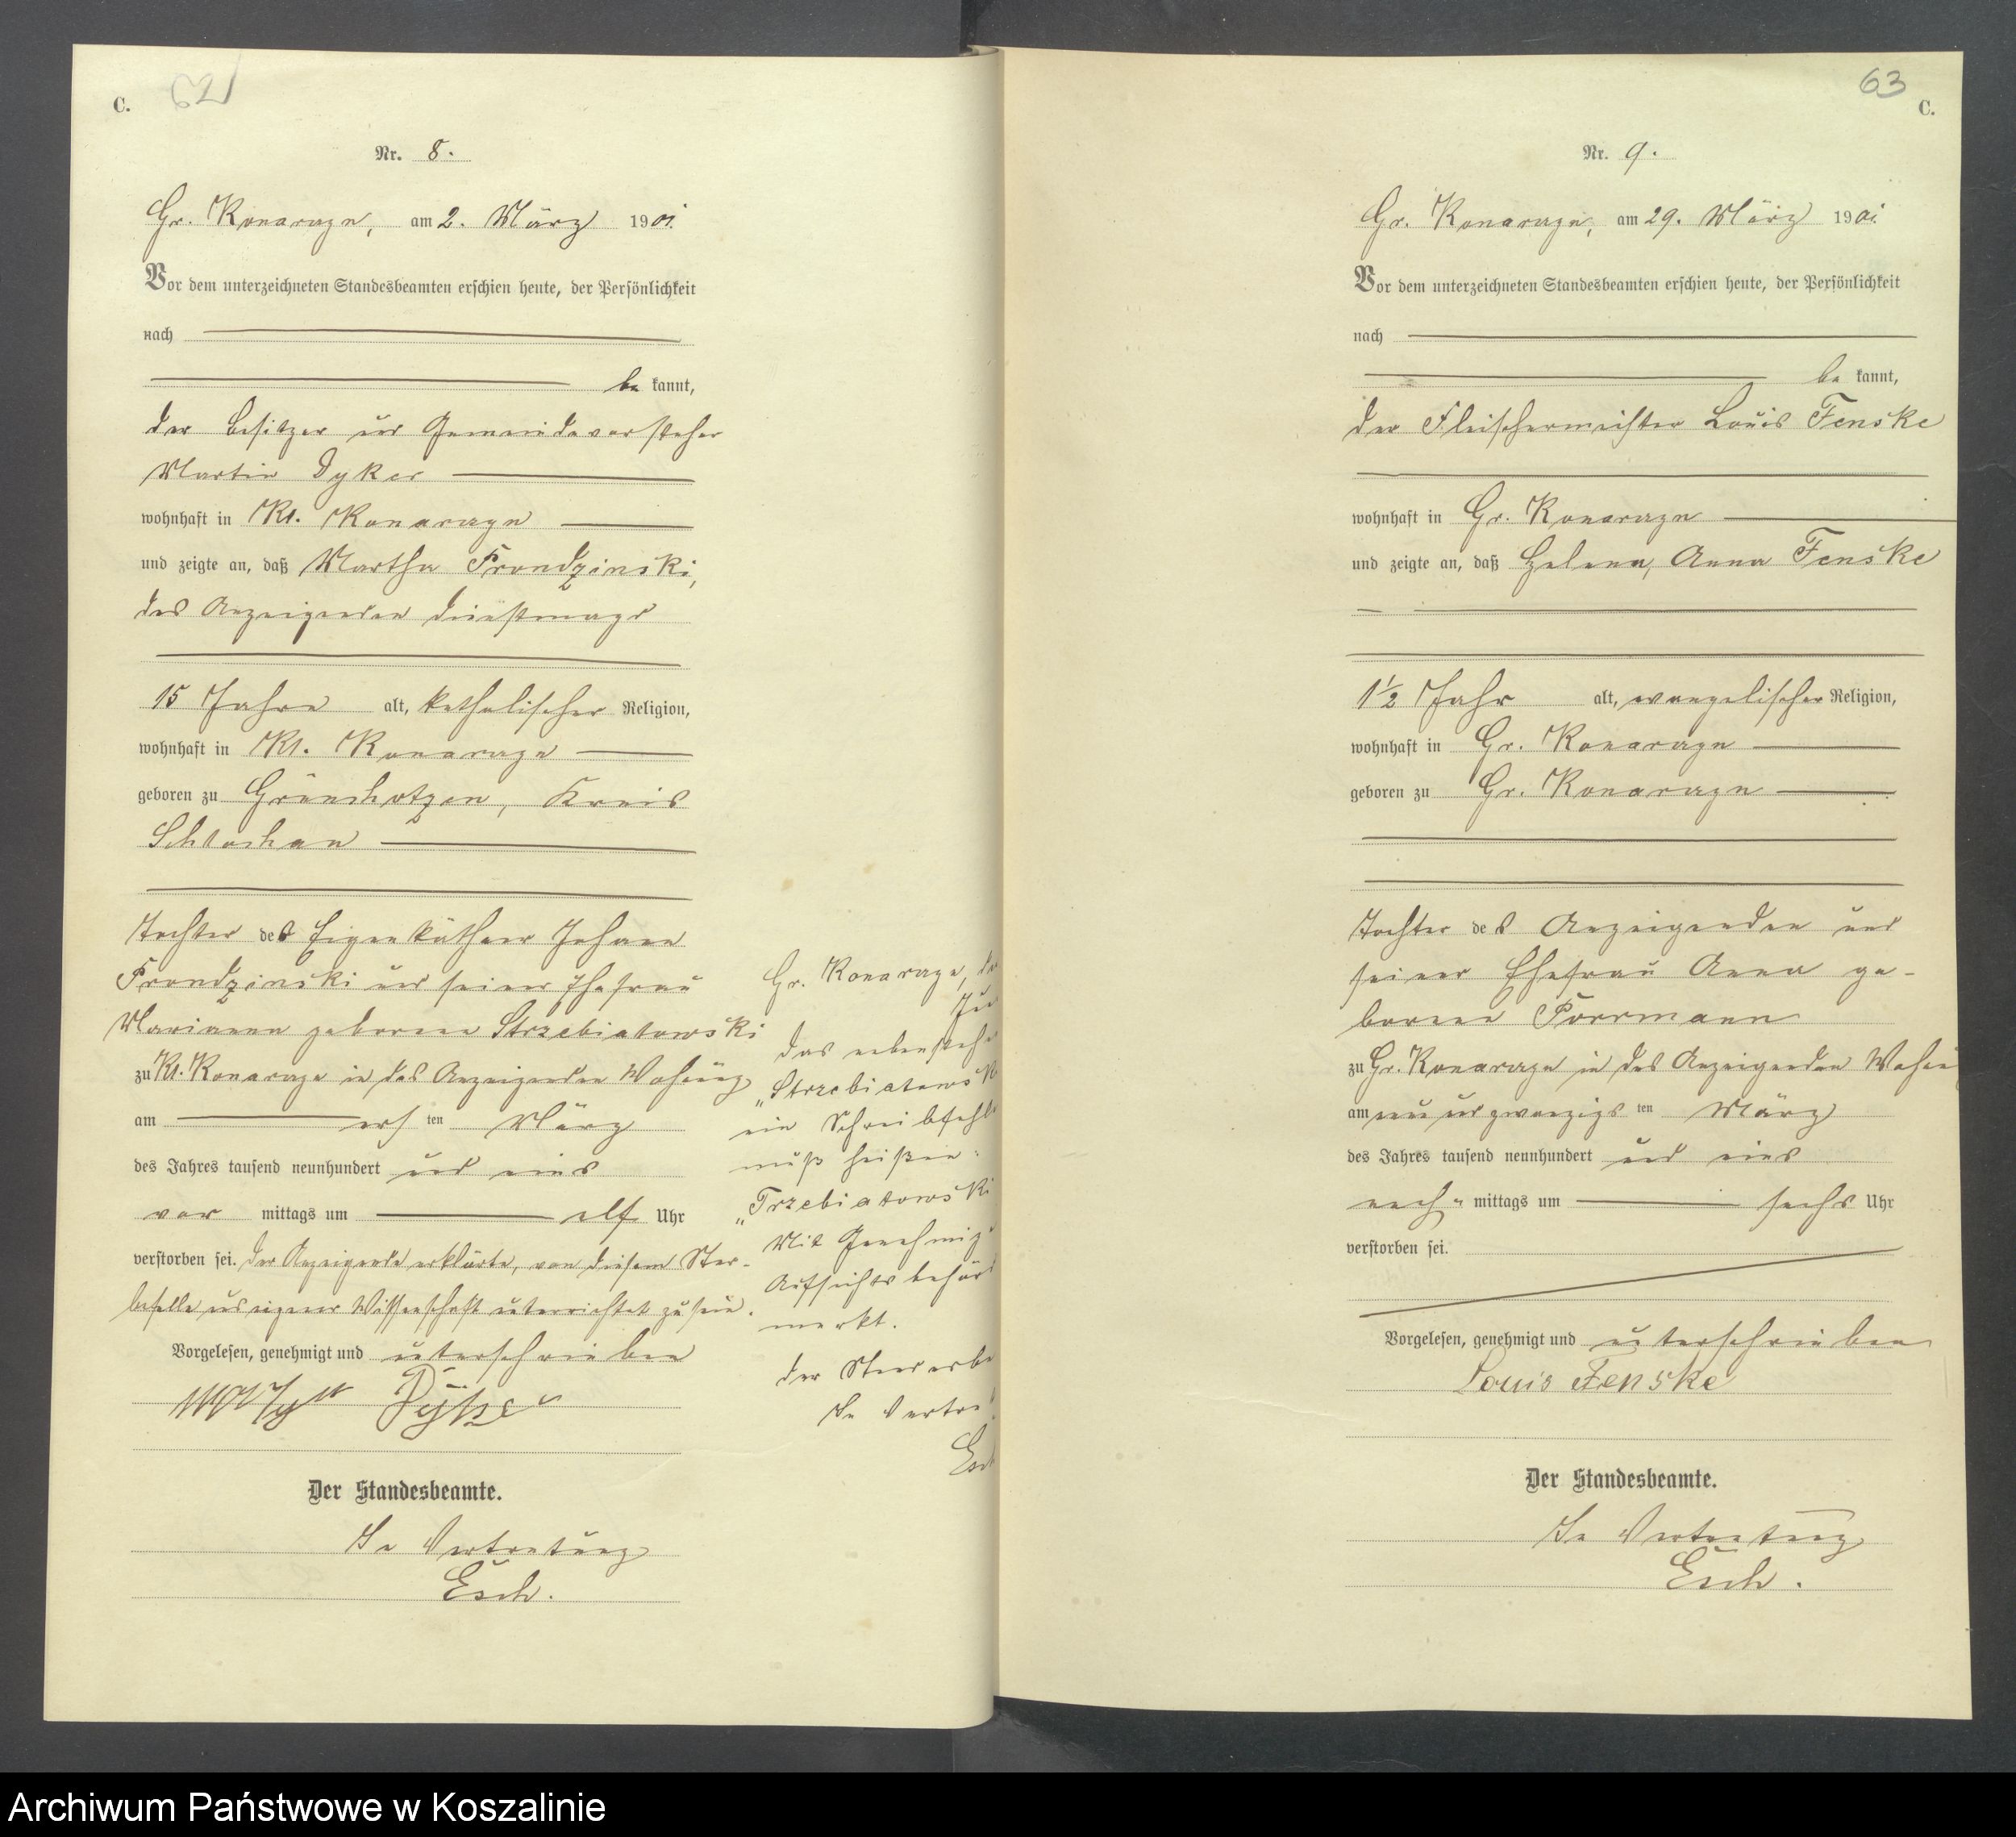 C.
62
Nr. 8.
Gr. Konarzyn, am 2. März 1901.
Vor dem unterzeichneten Standesbeamten erschien heute, der Persönlichkeit
nach
be kannt,
der Besitzer und Gemeindevorsteher
Martin Dyker
wohnhaft in Kl. Konarzyn
und zeigte an, daß Martha Prondzinski,
des Anzeigenden Dienstmagd
15 Jahre alt, katholischer Religion,
wohnhaft in Kl. Konarzyn
geboren zu Grünchotzen, Kreis
Schlochau
Tochter des Eigenkäthner Johann
Prondzinski und seiner Ehefrau
Marianna geborene Strzebiatowski
zu Kl. Konarzyn in des Anzeigenden Wohnung
am ers ten März
des Jahres tausend neunhundert und eins
vor mittags um elf Uhr
verstorben sei. Der Anzeigende erklärte, von diesem Ster-
befalle aus eigener Wissenschaft unterrichtet zu sein.
Vorgelesen, genehmigt und unterschrieben
Dyker
Der Standesbeamte.
In Vertretung
Esch.
Gr. Konarzyn,
das nebensteh
"Strzebiatowsk
ein Schreibfehl
muß heißen:
"Trzebiatowski
Mit Genehmig
Aufsichtsbehör
merkt.
der
In Vertre
Esch
63
C.
Nr. 9.
Gr. Konarzyn, am 29. März 1901.
Vor dem unterzeichneten Standesbeamten erschien heute, der Persönlichkeit
nach
be kannt,
der Fleischermeister Louis Fenske
wohnhaft in Gr. Konarzyn
und zeigte an, daß Helena, Anna Fenske
1½ Jahr alt, evangelischer Religion,
wohnhaft in Gr. Konarzyn
geboren zu Gr. Konarzyn
Tochter des Anzeigenden und
seiner Ehefrau Anna ge-
borene Porrmann
zu Gr. Konarzyn in des Anzeigenden Wohn
am neunundzwanzigs ten März
des Jahres tausend neunhundert und eins
nach mittags um sechs Uhr
verstorben sei.
Vorgelesen, genehmigt und unterschrieben
Louis Fenske
Der Standesbeamte.
In Vertretung
Esch.
Archiwum Państwowe w Koszalinie